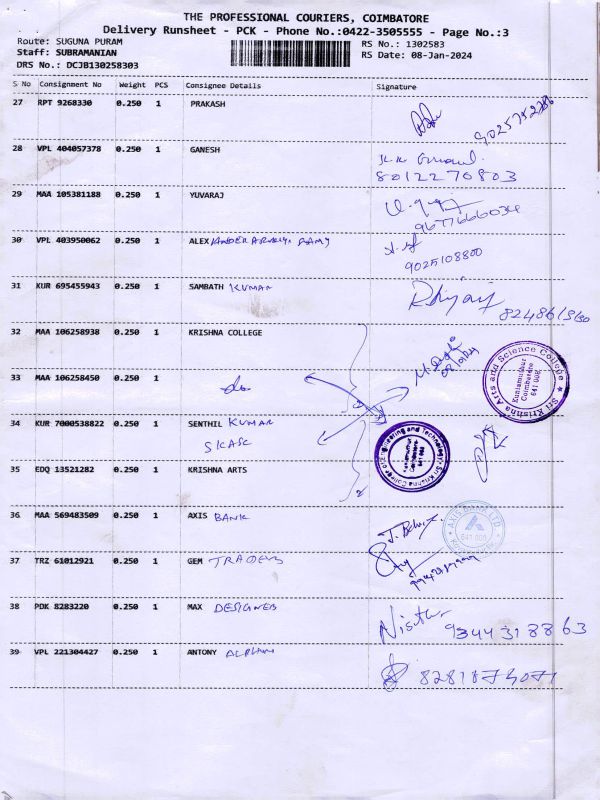 THE PROFESSIONAL COURIERS, COIMBATORE
Delivery Runsheet - PCK - Phone No.:0422-3505555 - Page No.:3
Route: SUGUNA PURAM RS No.: 1302583
Staff: SUBRAMANIAN RS Date: 08-Jan-2024
DRS No.: DCJB130258303
S No Consignment No Weight PCS Consignee Details Signature
27 RPT 9268330 0.250 1 PRAKASH
28 VPL 404057378 0.250 1 GANESH
8012270803
29 MAA 105381188 0.250 1 YUVARAJ
9677666034
30 VPL 403950062 0.250 1 ALEX
9025108800
31 KUR 695455943 0.250 1 SAMBATH KUMAR
32 MAA 106258938 0.250 1 KRISHNA COLLEGE
33 MAA 106258450 0.250 1
Sri Krishna Arts and Science College
Kuniamuthur
Coimbatore
641 008
34 KUR 7000538822 0.250 1 SENTHIL KUMAR
SKASC
Sri Krishna College of Engineering and Technology
Kuniamuthur
Coimbatore
641 008
35 EDQ 13521282 0.250 1 KRISHNA ARTS
36 MAA 569483509 0.250 1 AXIS BANK
AXIS BANK LTD
37 TRZ 61012921 0.250 1 GEM TRADERS
38 PDK 8283220 0.250 1 MAX DESIGNER
9344318863
39 VPL 221304427 0.250 1 ANTONY
8281874071